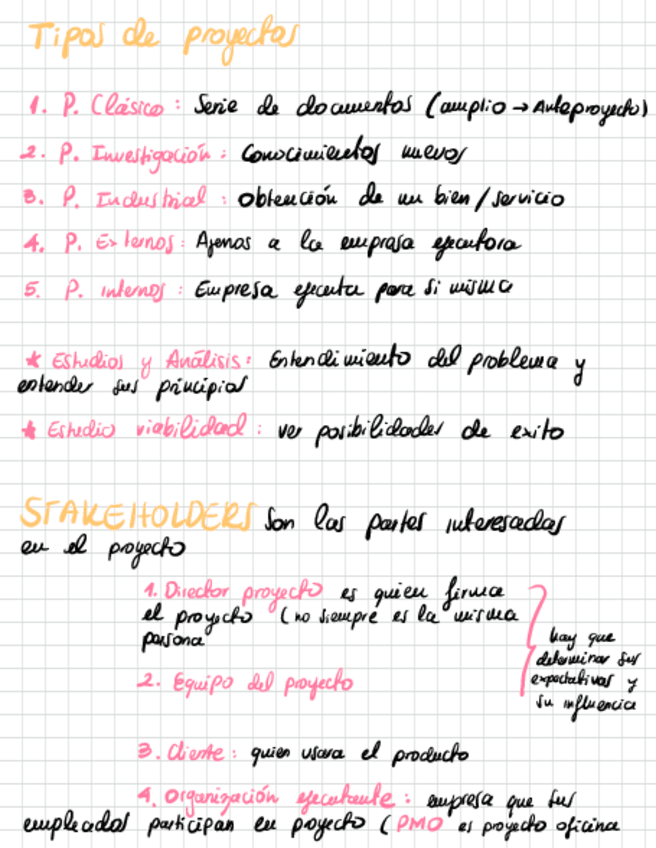 Tipos de proyectos
1. P. Clásico: Serie de documentos (amplio → Anteproyecto)
2. P. Investigación: Conocimientos nuevos
3. P. Industrial: Obtención de un bien / servicio
4. P. Externos: Ajenos a la empresa ejecutora
5. P. internos: Empresa ejecuta para si misma
* Estudios y Análisis: Entendimiento del problema y
entender sus principios
* Estudio viabilidad: ver posibilidades de exito
STAKEHOLDERS Son las partes interesadas
en el proyecto
1. Director proyecto es quien firma
el proyecto (no siempre es la misma
persona
hay que
determinar sus
expectativas y
su influencia
2. Equipo del proyecto
3. Cliente: quien usara el producto
4. Organización ejecutante: empresa que sus
empleados participan en proyecto (PMO es proyecto oficina